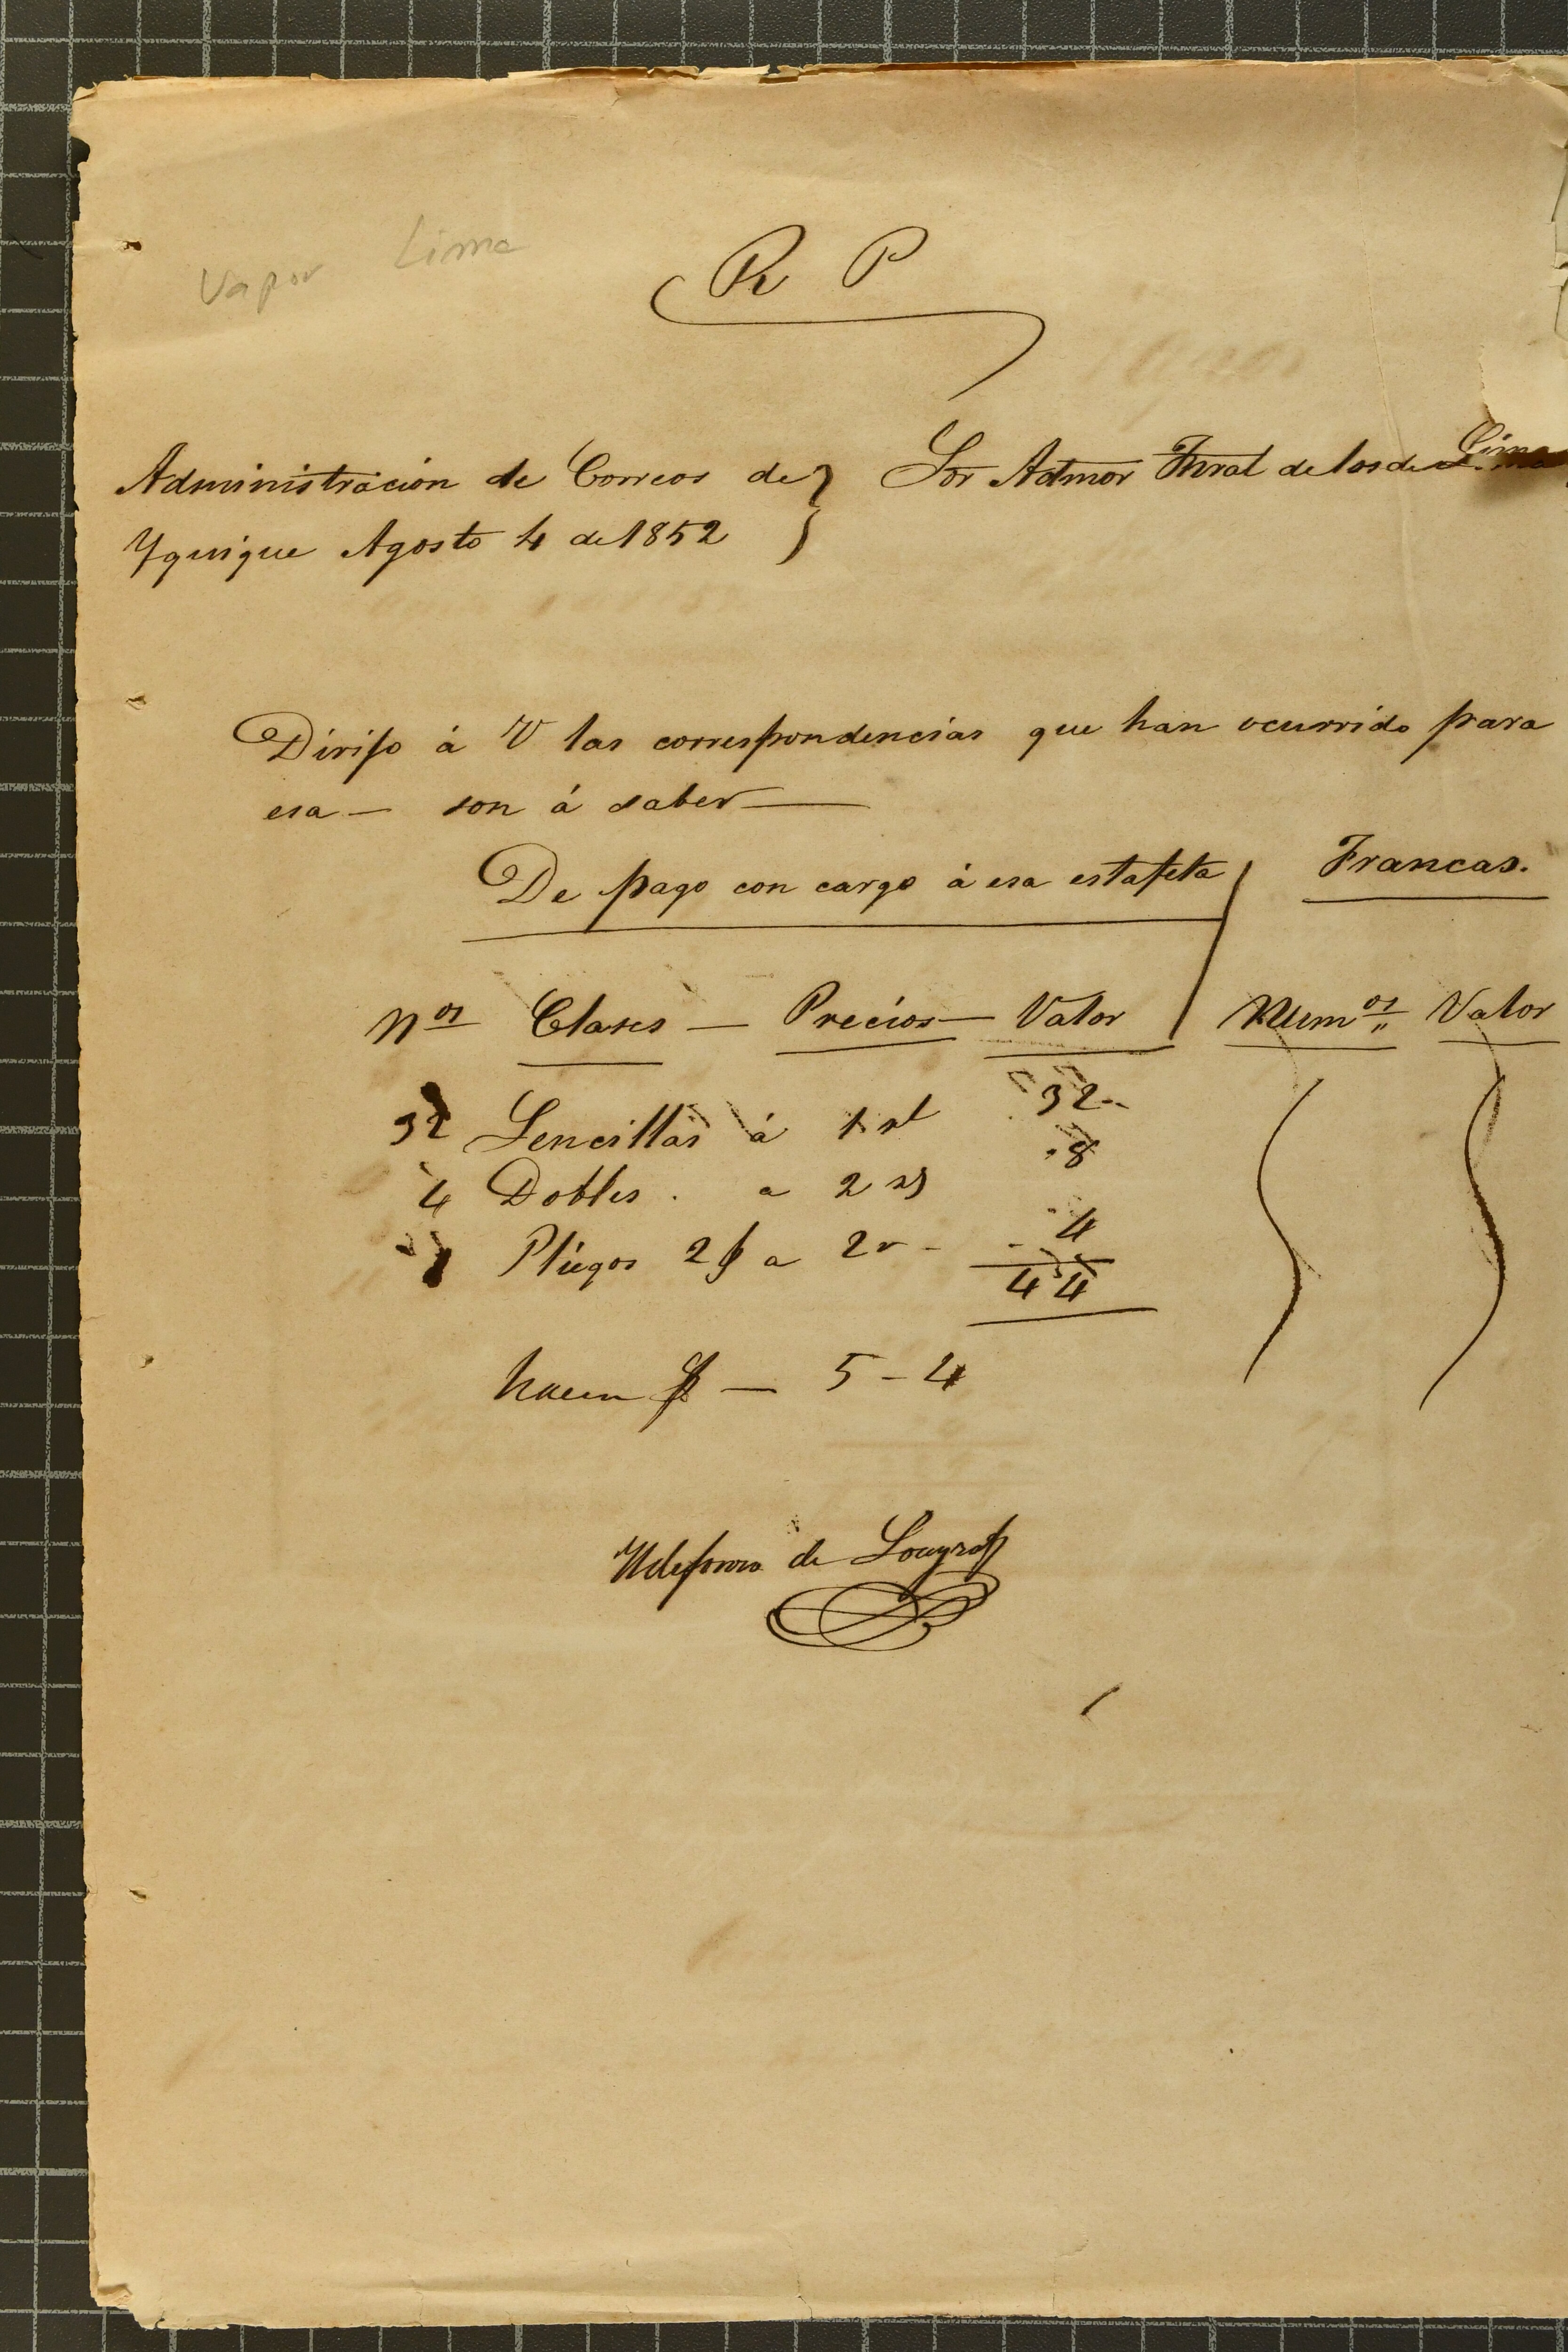 Vapor Lima
R P
Administracion de Correos de
Yquique Agosto 4 de 1852
Sor Admor Jnral de los de Lima
Dirijo á V las correspondencias que han ocurrido para
esa — son á saber —
De pago con cargo á esa estafeta
Francas.
Nos Clases — Precios — Valor
Numos Valor
32 Sencillas á 1 rl 32
4 Dobles . a 2 rs 8
1 Pliegos 2 a 2 r - 4
44
hacen $ — 5 - 4
Ildefonso de Loayza